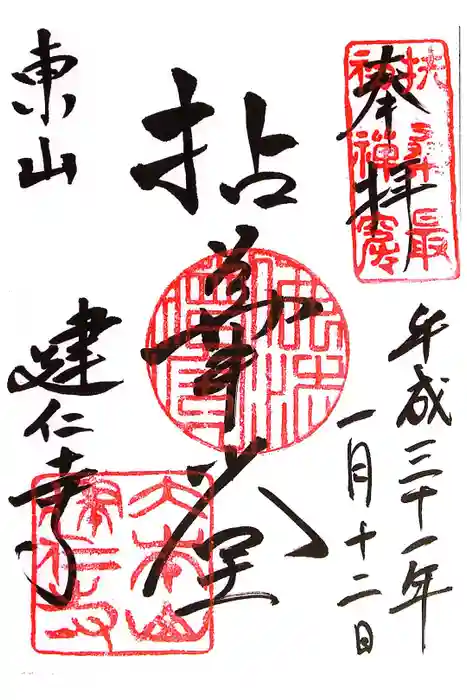 奉拝
扶桑最
初禅窟
平成三十一年
一月十二日
拈華堂
東山
建仁寺
大本山
建仁寺